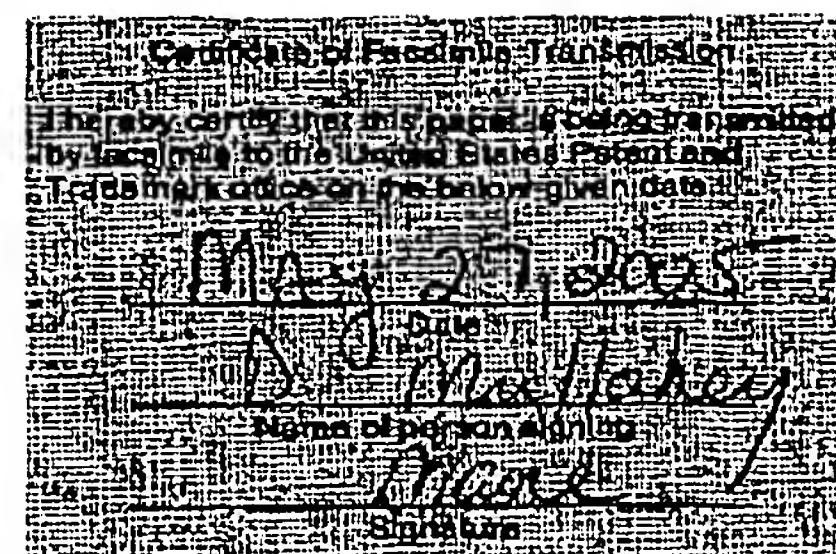 Certificate of Facsimile Transmission
I hereby certify that this paper is being transmitted
by facsimile to the United States Patent and
Trademark office on the below given date
May 27, 2005
Date
D.
Name of person signing
Signature